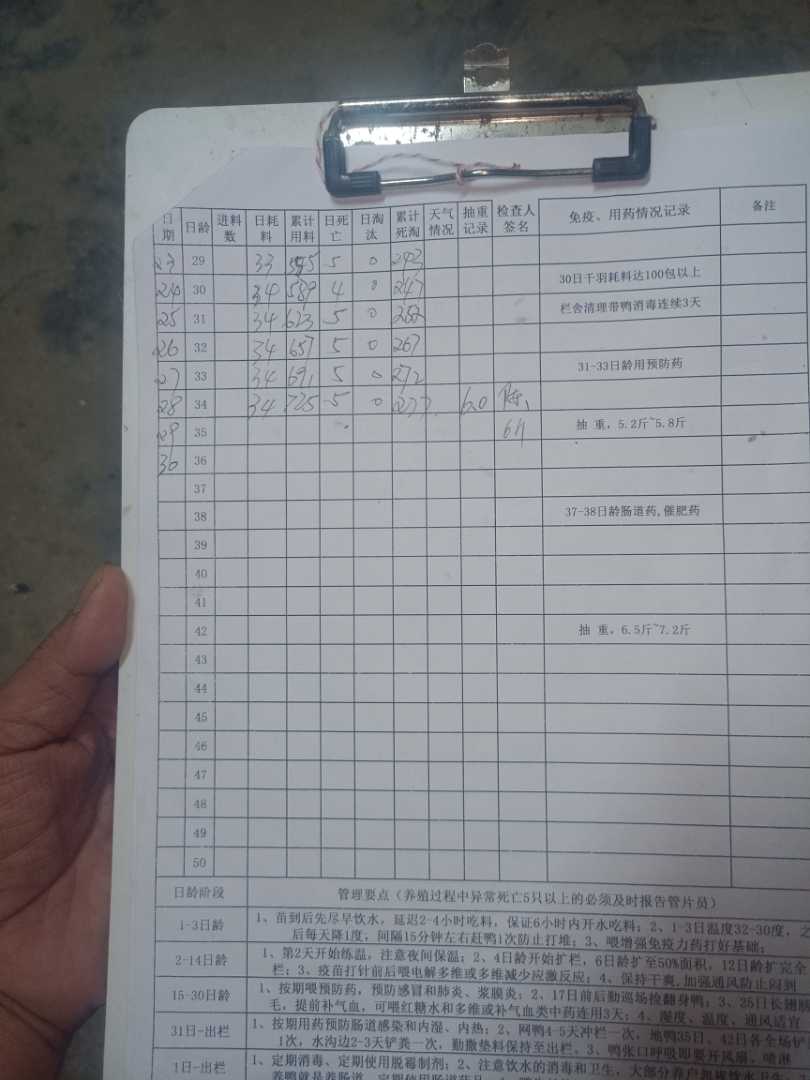 日期 日龄 进料数 日耗料 累计用料 日死亡 日淘汰 累计死淘 天气情况 抽重记录 检查人签名 免疫、用药情况记录 备注
23 29 33 5 0 242
24 30 34 589 4 0 247 30日千羽耗料达100包以上
25 31 34 623 5 0 栏舍清理带鸭消毒连续3天
26 32 34 657 5 0 267
27 33 34 691 5 0 272 31-33日龄用预防药
28 34 34 725 5 0 277 6.0
29 35 抽 重，5.2斤~5.8斤
30 36
37
38 37-38日龄肠道药,催肥药
39
40
41
42 抽 重，6.5斤~7.2斤
43
44
45
46
47
48
49
50
日龄阶段 管理要点（养殖过程中异常死亡5只以上的必须及时报告管片员）
1-3日龄 1、苗到后先尽早饮水，延迟2-4小时吃料，保证6小时内开水吃料；2、1-3日温度32-30度，之
后每天降1度，间隔15分钟左右赶鸭1次防止打堆；3、喂增强免疫力药打好基础；
2-14日龄 1、第2天开始练温，注意夜间保温；2、4日龄开始扩栏，6日龄扩至50%面积，12日龄扩完全
栏；3、疫苗打针前后喂电解多维或多维减少应激反应；4、保持干爽,加强通风防止闷到
15-30日龄 1、按期喂预防药，预防感冒和肺炎、浆膜炎；2、17日前后勤巡场捡翻身鸭；3、25日长翅
毛，提前补气血，可喂红糖水和多维或补气血类中药连用3天；4、湿度、温度、通风适宜
31日-出栏 1、按期用药预防肠道感染和内湿、内热；2、网鸭4-5天冲栏一次，地鸭35日、42日各全场铲
1次，水沟边2-3天铲粪一次，勤撒垫料保持至出栏、3、鸭张口呼吸即要开风扇、喷淋
1日-出栏 1、定期消毒、定期使用脱霉制剂；2、注意饮水的消毒和卫生，大部分养户忽视饮水卫生